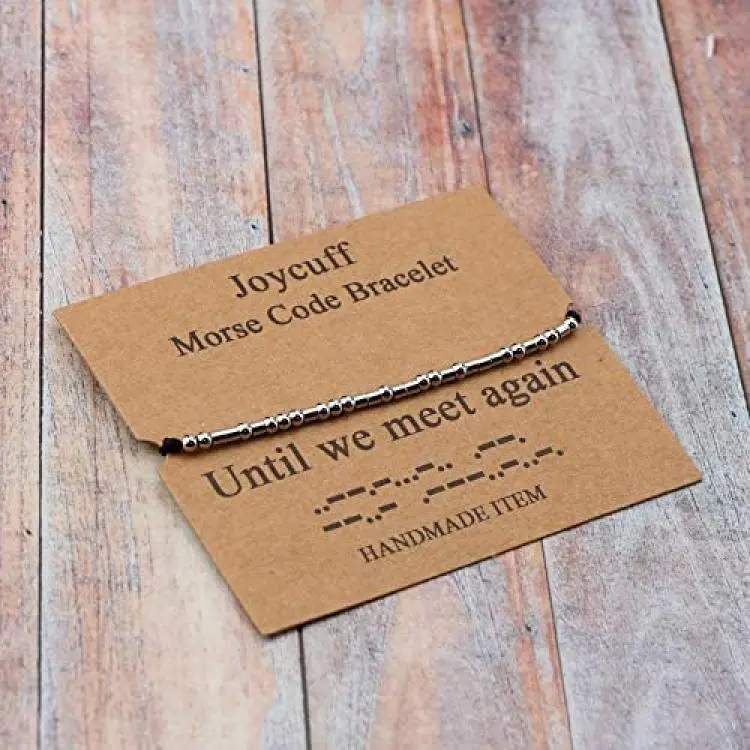 Joycuff
Morse Code Bracelet
Until we meet again
HANDMADE ITEM